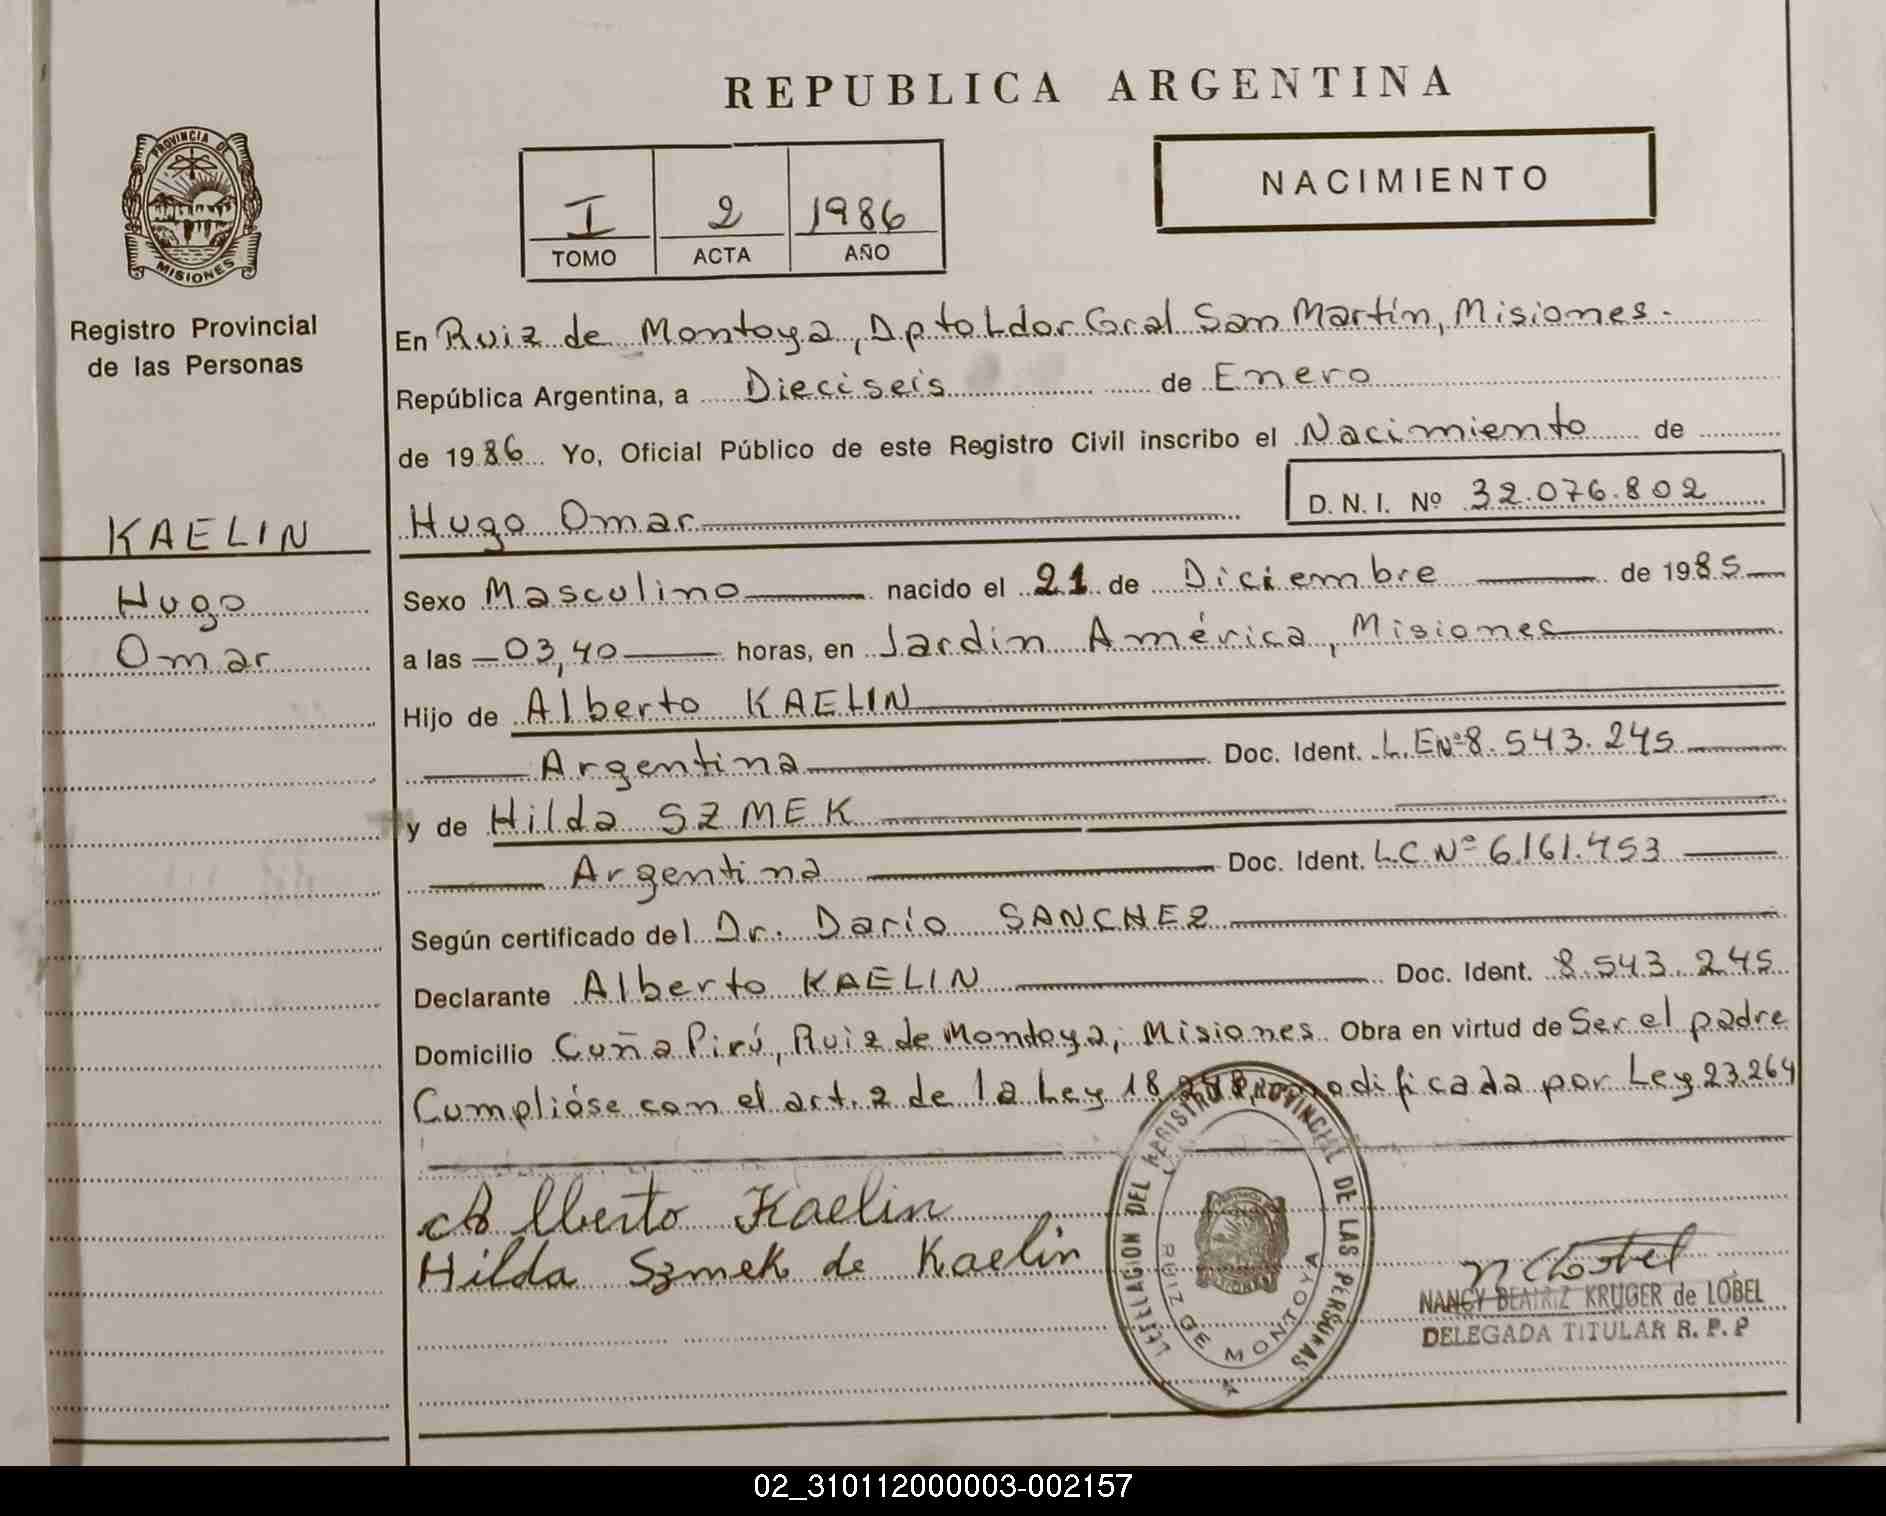 REPUBLICA ARGENTINA
PROVINCIA DE
MISIONES
Registro Provincial
de las Personas
I 2 1986
TOMO ACTA AÑO
NACIMIENTO
En Ruiz de Montoya, Dpto Ldor Gral San Martín, Misiones.
República Argentina, a Dieciseis de Enero
de 1986 Yo, Oficial Público de este Registro Civil inscribo el Nacimiento de
Hugo Omar D. N. I. Nº 32.076.802
KAELIN
Hugo
Omar
Sexo Masculino nacido el 21 de Diciembre de 1985
a las 03,40 horas, en Jardín América, Misiones
Hijo de Alberto KAELIN
Argentina Doc. Ident. L.E Nº 8.543.245
y de Hilda SZMEK
Argentina Doc. Ident. L.C. Nº 6.161.453
Según certificado del Dr. Darío SANCHEZ
Declarante Alberto KAELIN Doc. Ident. 8.543.245
Domicilio Cuña Pirú, Ruiz de Montoya, Misiones. Obra en virtud de Ser el padre
Cumplióse con el art. 2 de la Ley 18.248, modificada por Ley 23.264
Alberto Kaelin
Hilda Szmek de Kaelin
DEL REGISTRO PROVINCIAL DE LAS PERSONAS
RUIZ DE MONTOYA
NANCY BEATRIZ KRUGER de LOBEL
DELEGADA TITULAR R. P. P
02_310112000003-002157